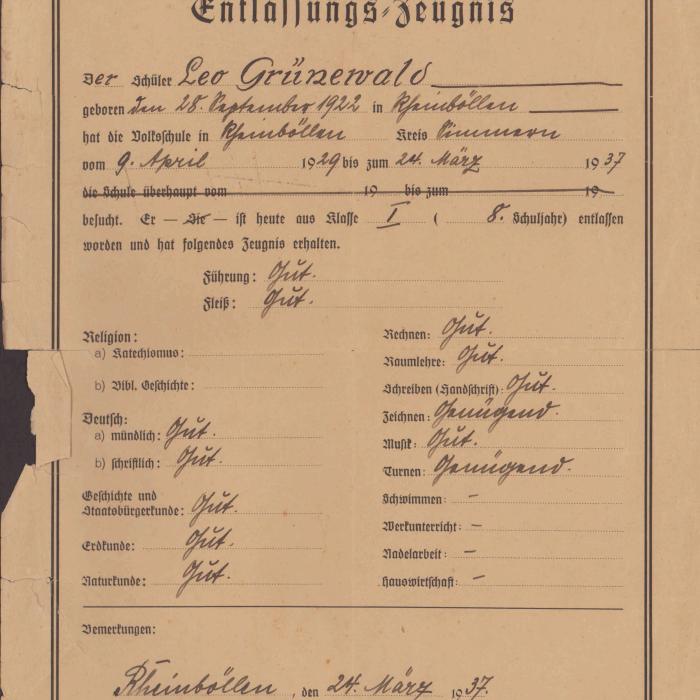 Entlassungs-Zeugnis
Der Schüler Leo Grünewald
geboren den 28. September 1922 in Rheinböllen
hat die Volksschule in Rheinböllen Kreis Simmern
vom 9. April 1929 bis zum 24. März 1937
die Schule überhaupt vom 19 bis zum 19
besucht. Er — Sie — ist heute aus Klasse I ( 8. Schuljahr) entlassen
worden und hat folgendes Zeugnis erhalten.
Führung: Gut.
Fleiß: Gut.
Religion:
a) Katechismus:
b) Bibl. Geschichte:
Deutsch:
a) mündlich: Gut.
b) schriftlich: Gut.
Geschichte und
Staatsbürgerkunde: Gut.
Erdkunde: Gut.
Naturkunde: Gut.
Rechnen: Gut.
Raumlehre: Gut.
Schreiben (Handschrift): Gut.
Zeichnen: Genügend.
Musik: Gut.
Turnen: Genügend.
Schwimmen: —
Werkunterricht: —
Nadelarbeit: —
Hauswirtschaft: —
Bemerkungen:
Rheinböllen, den 24. März 1937.